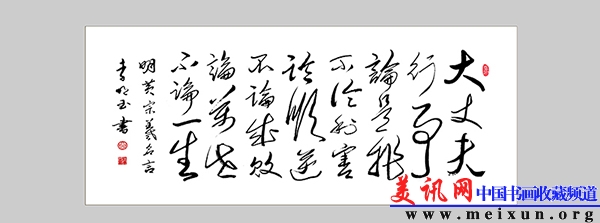 大丈夫
行事
論是非
不论利害
论順逆
不論成敗
論萬世
不論一生
明黄宗羲名言
李好玉書
美讯网
中国书画收藏频道
www.meixun.org